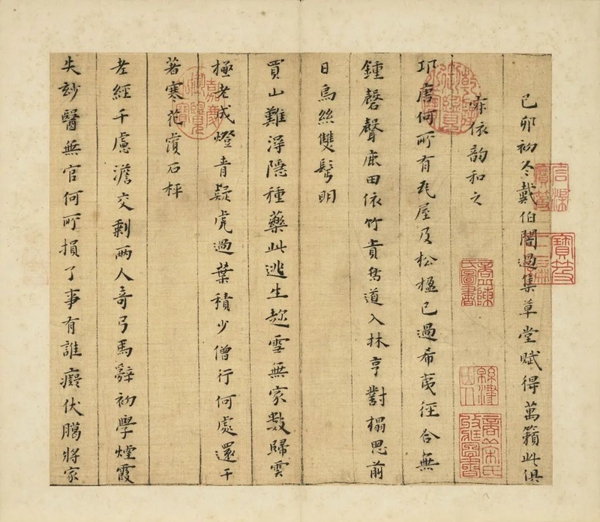 己卯初冬戴伯闇過集草堂賦得萬籟此俱
寐依韵和之
邛唐何所有瓦屋及松楹已過希夷徑合無
鍾磬聲康田依竹貴芻道入林亨對榻思前
日烏絲雙髩明
買山難淂隱種藥此逃生趂雪無家數歸雲
極老成燈青疑虎過葉積少僧行何處還干
著寒花賞石枰
老經千慮澹交剩兩人奇弓馬辭初學煙霞
失玅醫無官何所損了事有誰癡伏臘將家